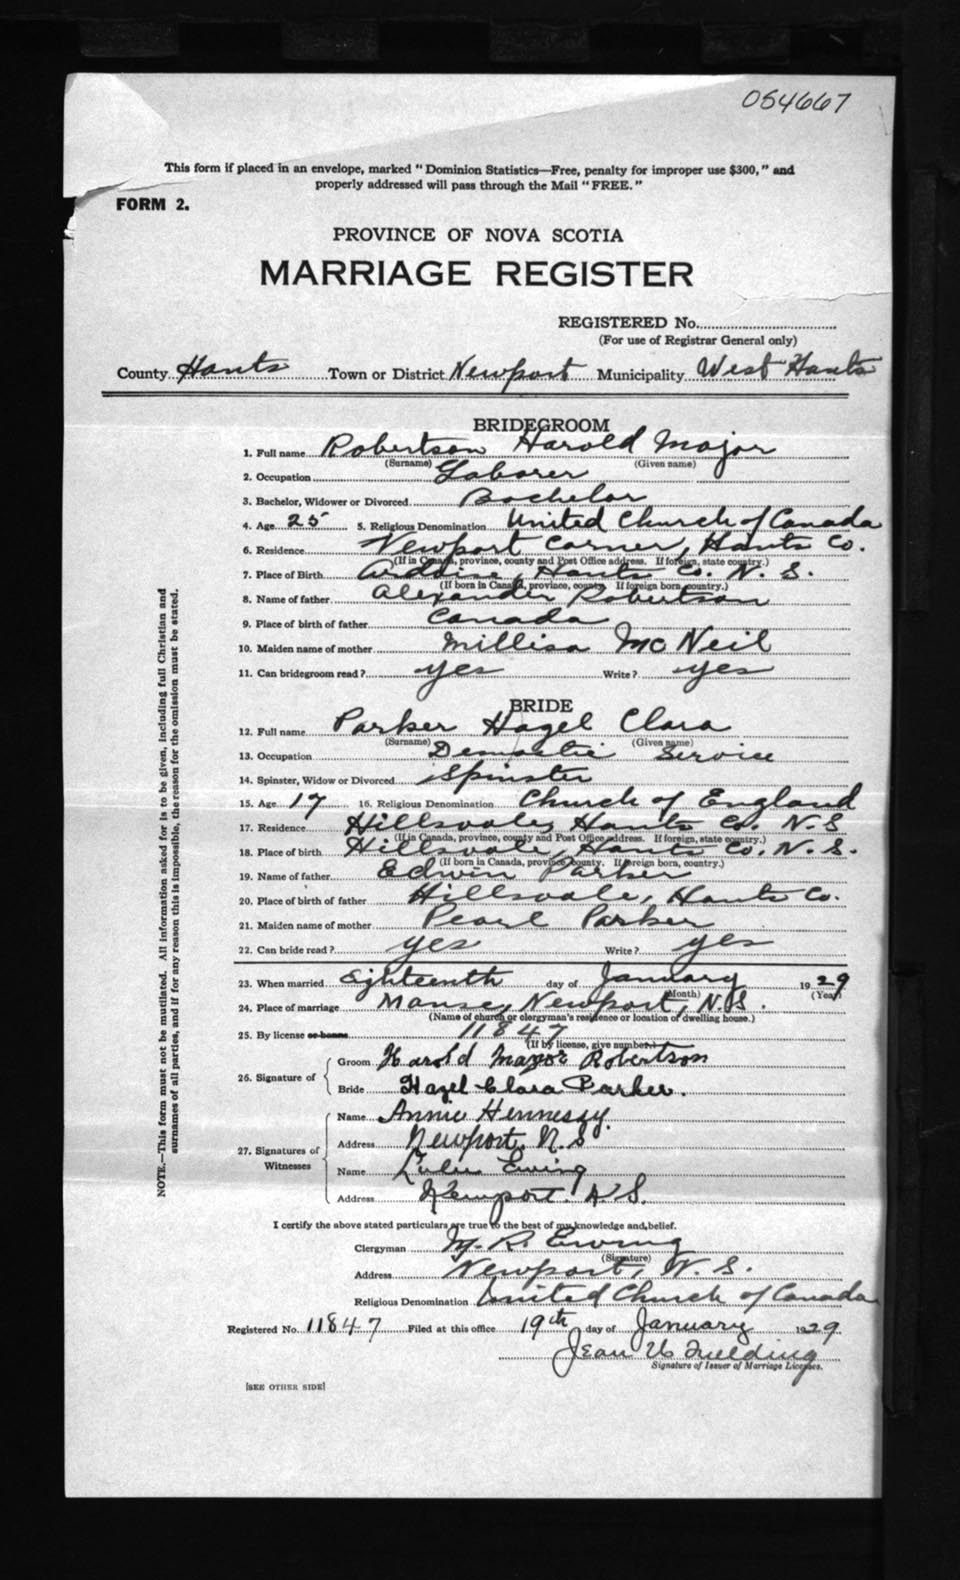 054667
This form if placed in an envelope, marked "Dominion Statistics—Free, penalty for improper use $300," and
properly addressed will pass through the Mail "FREE."
FORM 2.
PROVINCE OF NOVA SCOTIA
MARRIAGE REGISTER
REGISTERED No.
(For use of Registrar General only)
County Hants Town or District Newport Municipality West Hants
BRIDEGROOM
1. Full name Robertson Harold Major
(Surname) (Given name)
2. Occupation Laborer
3. Bachelor, Widower or Divorced Bachelor
4. Age 25 5. Religious Denomination United Church of Canada
6. Residence Newport Corner, Hants Co.
(If in Canada, province, county and Post Office address. If foreign, state country.)
7. Place of Birth Ardoise, Hants Co. N. S.
(If born in Canada, province, county. If foreign born, country.)
8. Name of father Alexander Robertson
9. Place of birth of father Canada
10. Maiden name of mother Millisa McNeil
11. Can bridegroom read? yes Write? yes
BRIDE
12. Full name Parker Hazel Clara
(Surname) (Given name)
13. Occupation Domestic Service
14. Spinster, Widow or Divorced Spinster
15. Age 17 16. Religious Denomination Church of England
17. Residence Hillsvale, Hants Co. N.S
(If in Canada, province, county and Post Office address. If foreign, state country.)
18. Place of birth Hillsvale, Hants Co. N. S.
(If born in Canada, province, county. If foreign born, country.)
19. Name of father Edwin Parker
20. Place of birth of father Hillsvale, Hants Co.
21. Maiden name of mother Pearl Parker
22. Can bride read? yes Write? yes
23. When married Eighteenth day of January 1929
(Month) (Year)
24. Place of marriage Manse, Newport, N.S.
(Name of church or clergyman's residence or location of dwelling house.)
25. By license or banns 11847
(If by license, give number.)
26. Signature of
Groom Harold Major Robertson
Bride Hazel Clara Parker.
27. Signatures of Witnesses
Name Annie Hennessy.
Address Newport, N.S
Name Lulu Ewing
Address Newport. N.S.
I certify the above stated particulars are true to the best of my knowledge and belief.
Clergyman M. R. Ewing
(Signature)
Address Newport, N. S.
Religious Denomination United Church of Canada
Registered No. 11847 Filed at this office 19th day of January 1929
Jean Fielding
Signature of Issuer of Marriage Licenses.
[SEE OTHER SIDE]
NOTE.—This form must not be mutilated. All information asked for is to be given, including full Christian and
surnames of all parties, and if for any reason this is impossible, the reason for the omission must be stated.